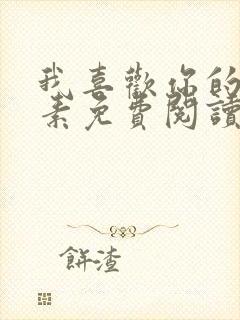 我喜歡你的
素免費閱讀
餅渣